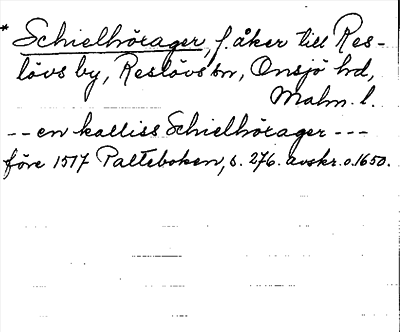 * Schielhörager, f. åker till Res-
lövs by, Reslövs sn, Onsjö hd,
Malm. l.
-- en kalliss Schielhörager ---
före 1517 Palteboken, s. 276. avskr. o. 1650.